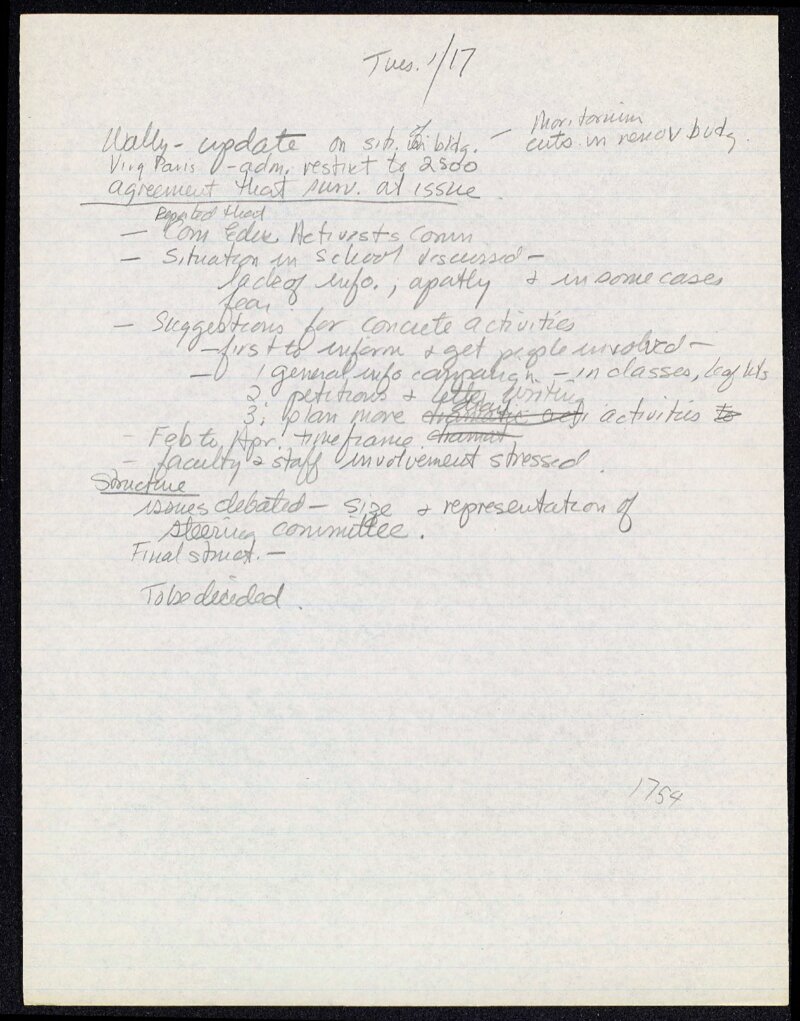 Tues. 1/17
Moritorium
Wally - update on sit. of bldg. - cuts in renov budg.
Virg Paris - adm. restrict to 2500
agreement that surv. at issue
Reported that
- Com Educ Activists Comm
- Situation in School discussed -
lack of info., apathy & in some cases
fear
- Suggestions for concrete activities
- first to inform & get people involved -
- 1 general info campaign - in classes, leaflets
2 petitions & letter writing
3; plan more activities to
- Feb to Apr. timeframe
- faculty & staff involvement stressed.
Structure
issues debated - size & representation of
steering committee.
Final struct. -
To be decided.
1754